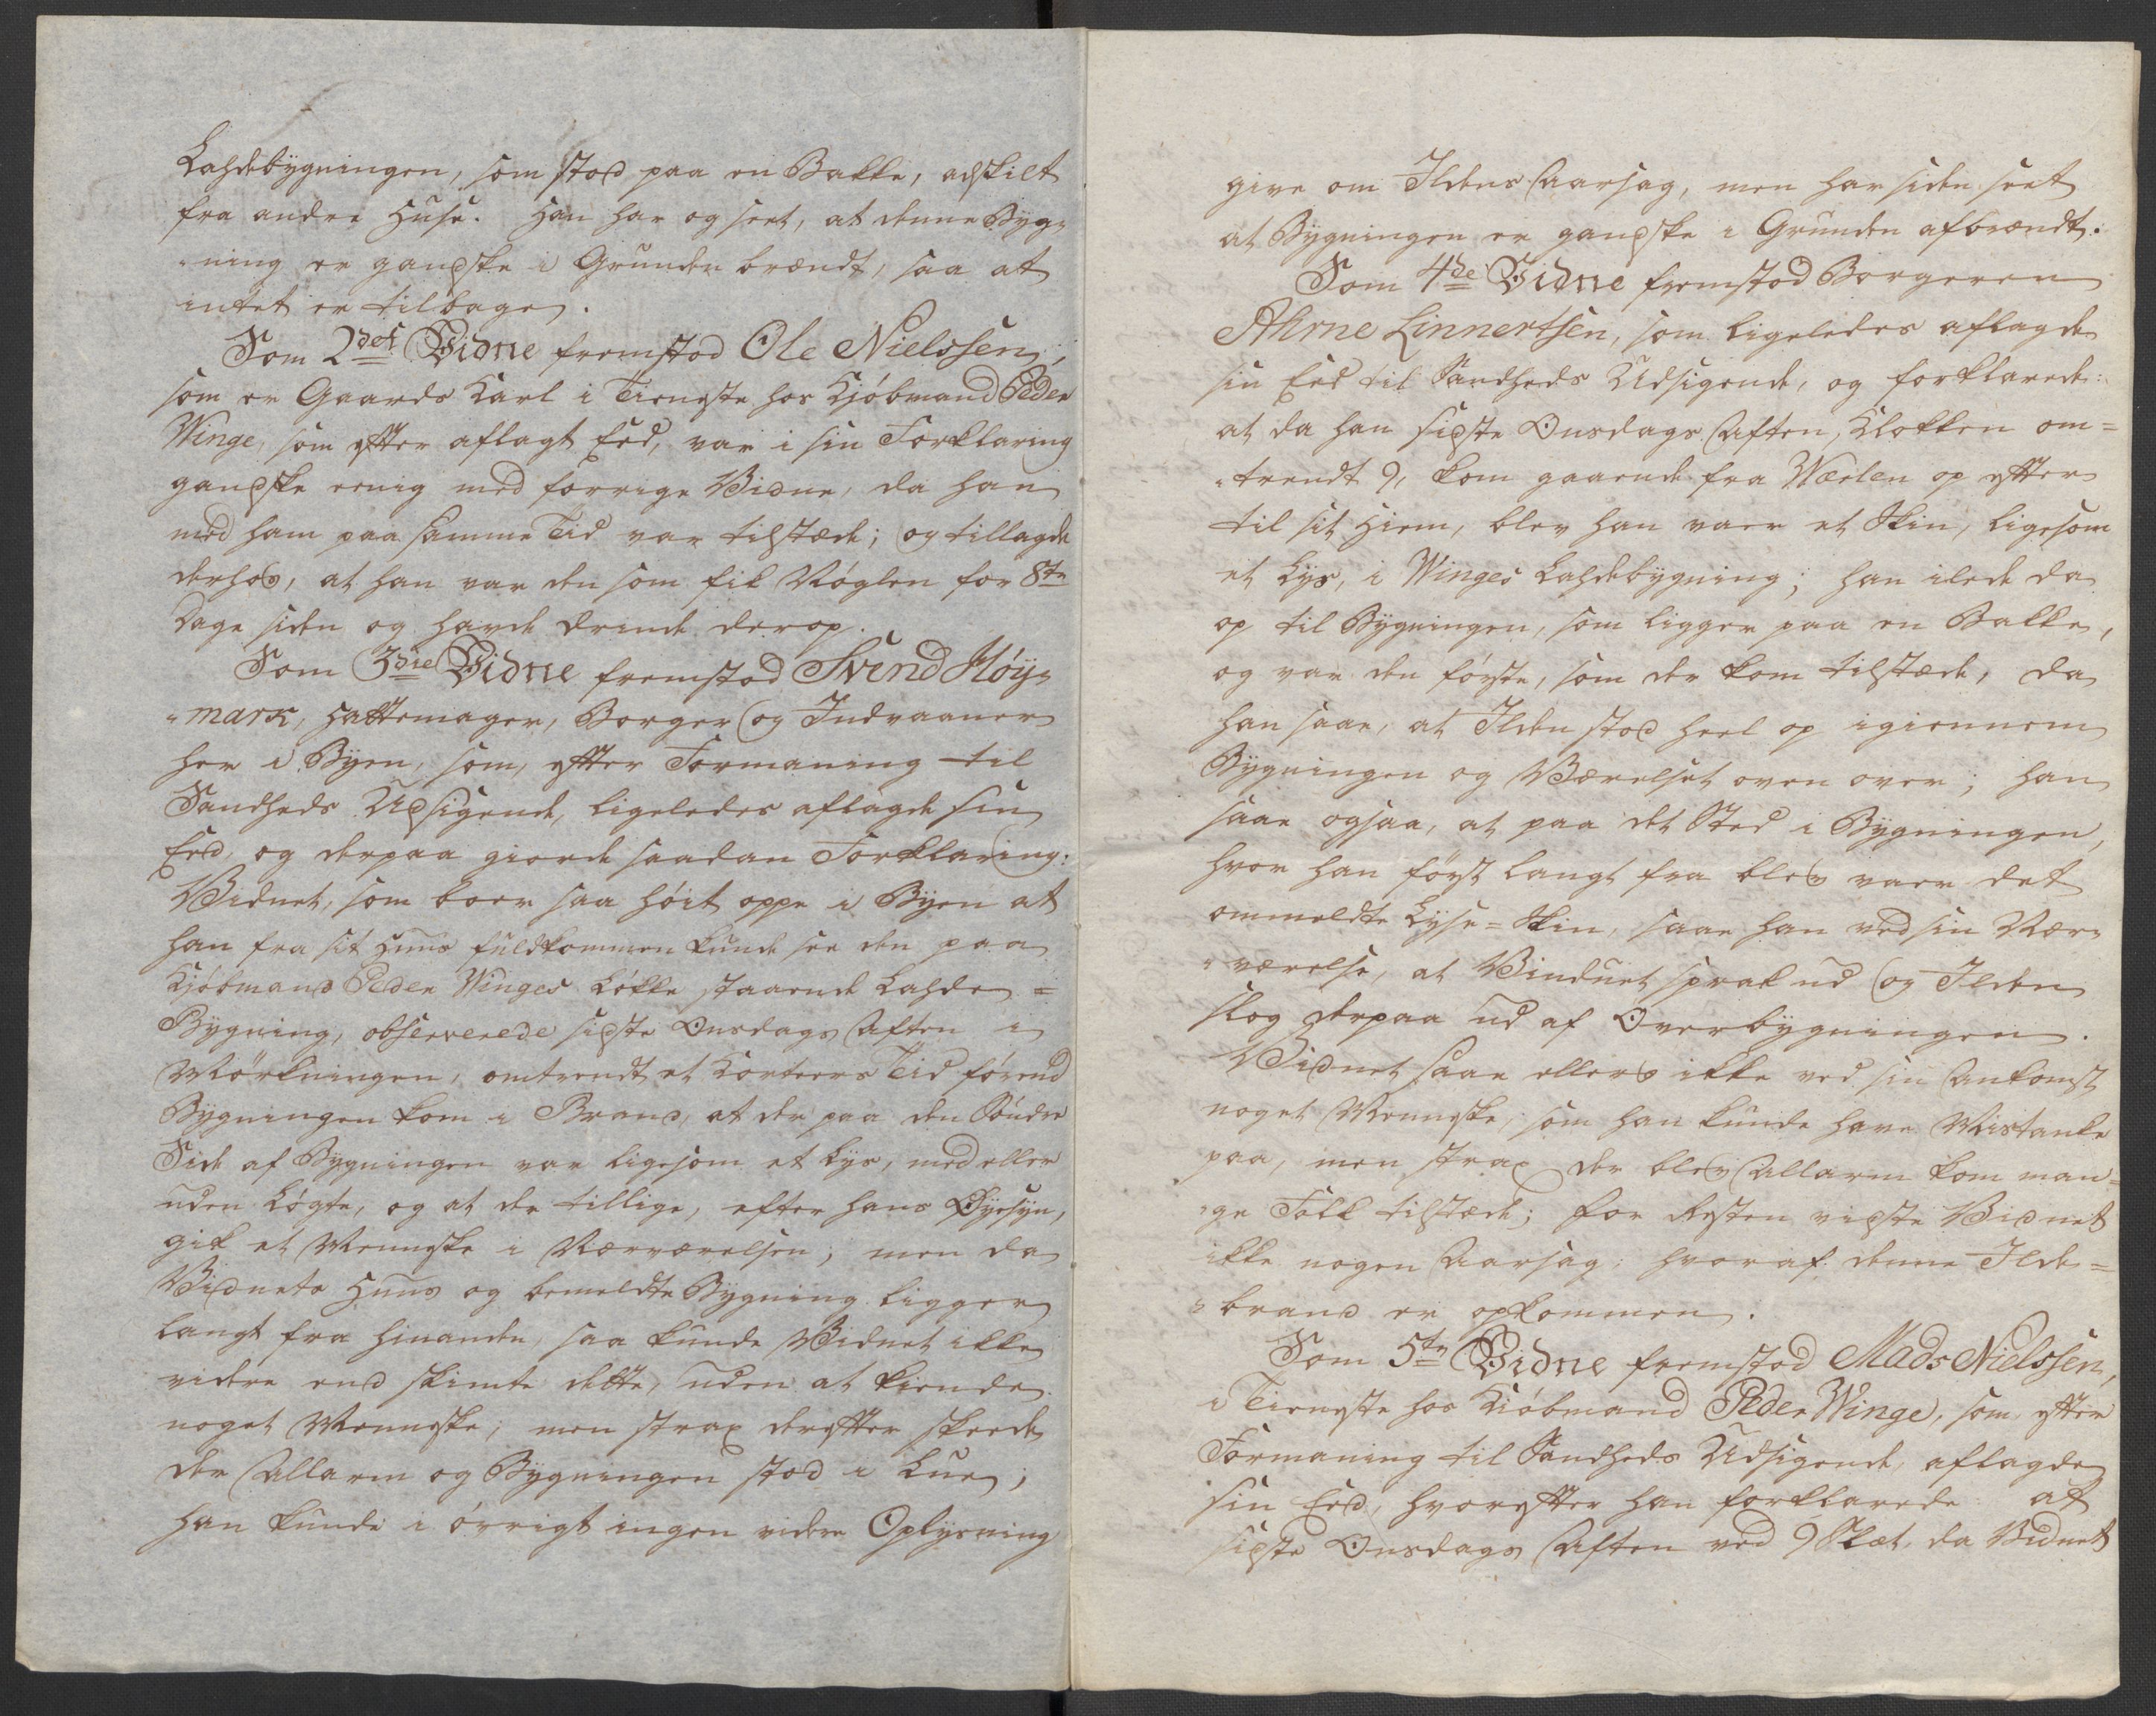 Lahdebygningen, som stod paa en Bakke, adskilt
fra andre Huse. Han har og seet, at denne Byg-
-ning er gandske i Grunden brændt, saa at
intet er tilbage.
Som 2det Vidne fremstod Ole Nielssen,
som er Gaards Karl i Tieneste hos Kjøbmand Peder
Winge, som efter aflagt Eed, var i sin Forklaring
gandske eenig med forrige Vidne, da han
med ham paa samme Tid var tilstæde; og tillagde
derhos, at han var den som fik Nøglen for 8te
Dage siden og havde Ærinde derop.
Som 3die Vidne fremstod Svend Høy-
-mark, Hattemager, Borger og Indvaaner
her i Byen, som, efter Formaning til
Sandheds Udsigende, ligeledes aflagde sin
Eed, og derpaa giorde saadan Forklaring:
Vidnet, som boer saa høit oppe i Byen at
han fra sit Huus fuldkommen kunde see den paa
Kjøbmand Peder Winges Løkke staaende Lahde-
Bygning, observerede sidste Onsdags Aften i
Mørkningen, omtrendt et Korteers Tid førend
Bygningen kom i Brand, at der paa den Søndre
Side af Bygningen var ligesom et Lys, med eller
uden Løgte, og at der tillige, efter hans Øyesyn,
gik et Menneske i Nærværelsen; men da
Vidnets Huus og bemeldte Bygning ligger
langt fra hinanden, saa kunde Vidnet ikke
videre end skimte dette, uden at kiende
noget Menneske; men strax derefter skeede
der Allarm og Bygningen stod i Lue;
han kunde i øvrigt ingen videre Oplysning
give om Ildens Aarsag, men har siden seet
at Bygningen er gandske i Grunden afbrændt.
Som 4de Vidne fremstod Borgeren
Ahrne Linnertsen, som ligeledes aflagde
sin Eed til Sandheds Udsigende, og forklarede:
at da han sidste Onsdags Aften, Klokken om-
-trendt 9, kom gaaende fra Wærlen op efter
til sit Hiem, blev han vaer et Skin, ligesom
et Lys, i Winges Lahdebygning; han ilede da
op til Bygningen, som ligger paa en Bakke,
og var den første, som der kom tilstæde, da
han saae, at Ilden stod heel op igiennem
Bygningen og Værelset oven over; han
saae ogsaa, at paa det Sted i Bygningen,
hvor han først langt fra blev vaer det
ommeldte Lyse-Skin, saae han ved sin Nær-
-værelse, at Vinduet sprak ud og Ilden
slog derpaa ud af Overbygningen.
Vidnet saae ellers ikke ved sin Ankomst
noget Menneske, som han kunde have Mistanke
paa, men strax der blev Allarm kom man-
-ge Folk tilstæde; for Resten vidste Vidnet
ikke nogen Aarsag, hvoraf denne Ilde-
-brand er opkommen.
Som 5te Vidne fremstod Mads Nielssen,
i Tieneste hos Kiøbmand Peder Winge, som efter
Formaning til Sandheds Udsigende, aflagde
sin Eed, hvorefter han forklarede at
sidste Onsdags Aften ved 9 Slæt, da Vidnet